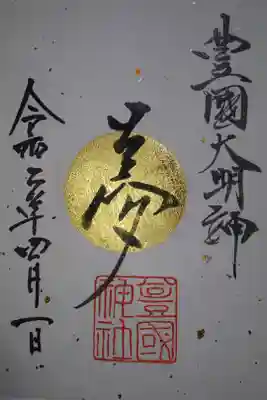 豊國大明神
夢
豊國
神社
令和二年四月一日